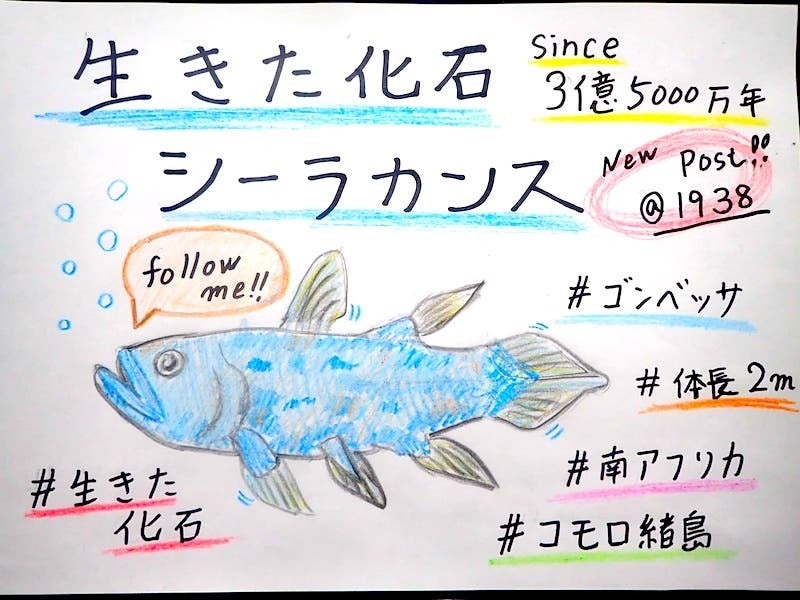 生きた化石
since
3億5000万年
シーラカンス
New Post!!
@1938
follow
me!!
#ゴンベッサ
#体長2m
#南アフリカ
#生きた
化石
#コモロ緒島